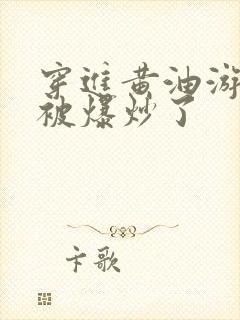 穿进黄油游
被爆炒了
卡歌